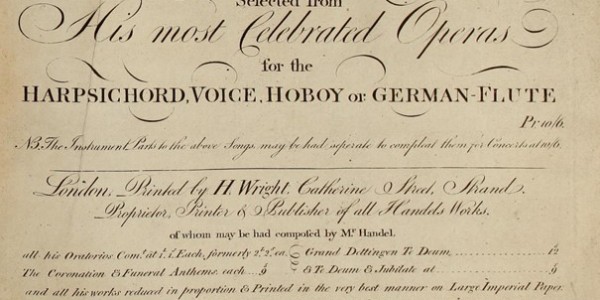 Selected from
His most Celebrated Operas
for the
HARPSICHORD, VOICE, HOBOY or GERMAN-FLUTE
Pr. 10/6.
NB. The Instrument. Parts to the above Songs may be had seperate to compleat them for Concerts at 10/6.
London. Printed by H. Wright, Catherine Street, Strand.
Proprietor, Printer & Publisher of all Handels Works.
of whom may be had composed by Mr. Handel.
all his Oratorios Com. at Each, formerly ea. Grand Dettingen Te Deum
The Coronation & Funeral Anthems. each & Te Deum & Jubilate at
and all his works reduced in proportion & Printed in the very best manner on Large Imperial Paper.